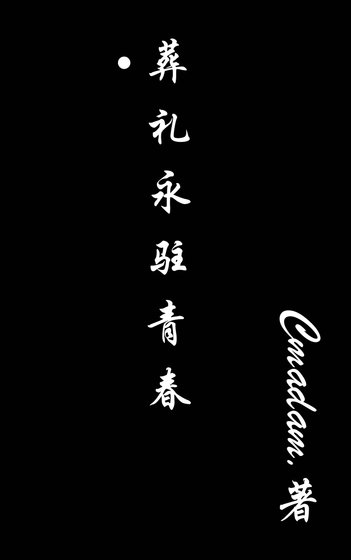 葬礼永驻青春
Cmadam. 著